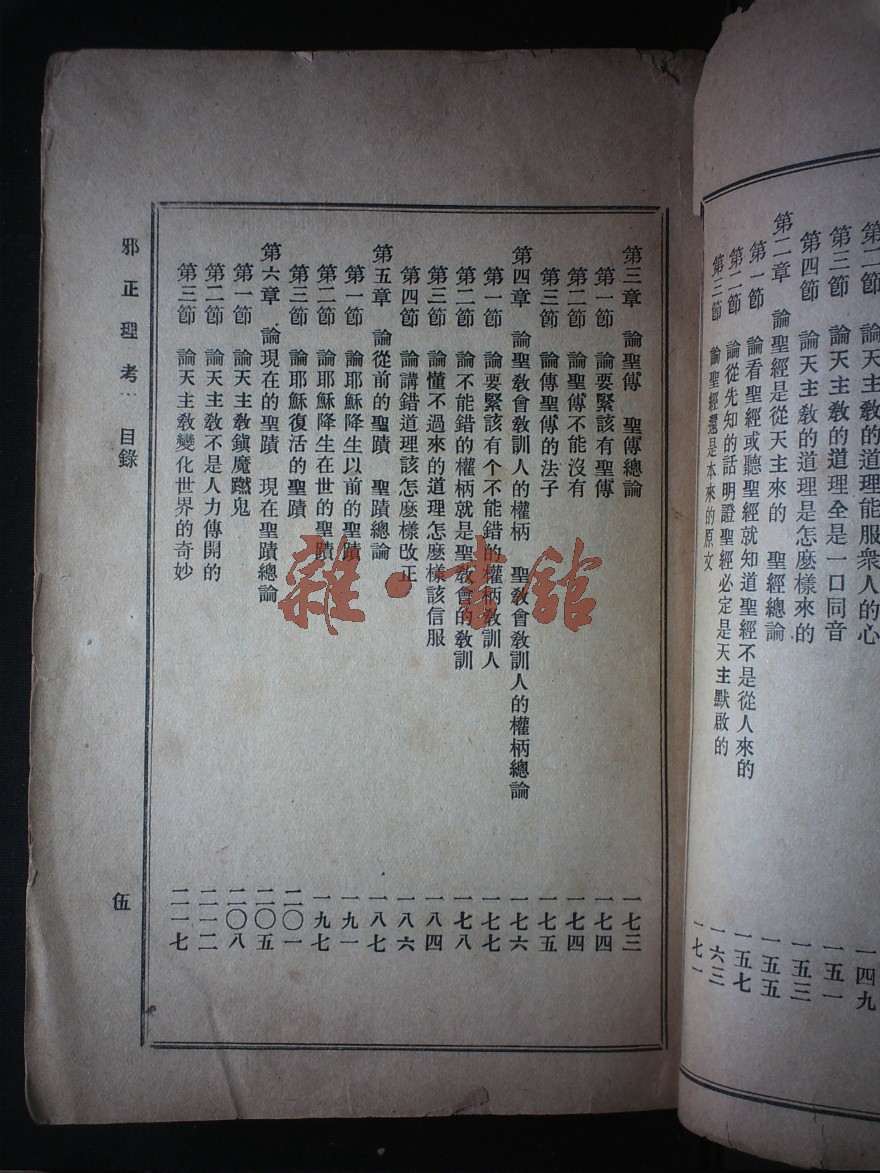 第二節 論天主敎的道理能服衆人的心 一四九
第三節 論天主敎的道理全是一口同音 一五一
第四節 論天主敎的道理是怎麽樣來的 一五三
第二章 論聖經是從天主來的 聖經總論 一五五
第一節 論看聖經或聽聖經就知道聖經不是從人來的 一五七
第二節 論從先知的話明證聖經必定是天主默啟的 一六三
第三節 論聖經還是本來的原文 一七一
第三章 論聖傳 聖傳總論 一七三
第一節 論要緊該有聖傳 一七四
第二節 論聖傳不能沒有 一七四
第三節 論傳聖傳的法子 一七五
第四章 論聖敎會敎訓人的權柄 聖敎會敎訓人的權柄總論 一七六
第一節 論要緊該有个不能錯的權柄敎訓人 一七七
第二節 論不能錯的權柄就是聖敎會的敎訓 一七八
第三節 論懂不過來的道理怎麽樣該信服 一八四
第四節 論講錯道理該怎麽樣改正 一八六
第五章 論從前的聖蹟 聖蹟總論 一八七
第一節 論耶穌降生以前的聖蹟 一九一
第二節 論耶穌降生在世的聖蹟 一九七
第三節 論耶穌復活的聖蹟 二〇一
第六章 論現在的聖蹟 現在聖蹟總論 二〇五
第一節 論天主敎鎭魔蹾鬼 二〇八
第二節 論天主敎不是人力傳開的 二一二
第三節 論天主敎變化世界的奇妙 二一七
邪正理考 目錄 伍
雜·書館